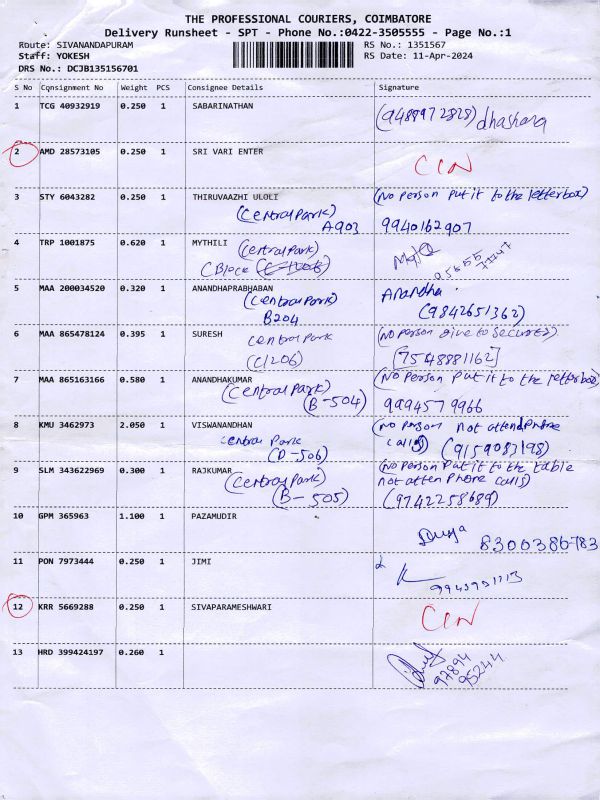 THE PROFESSIONAL COURIERS, COIMBATORE
Delivery Runsheet - SPT - Phone No.:0422-3505555 - Page No.:1
Route: SIVANANDAPURAM RS No.: 1351567
Staff: YOKESH RS Date: 11-Apr-2024
DRS No.: DCJB135156701
S No Consignment No Weight PCS Consignee Details Signature
1 TCG 40932919 0.250 1 SABARINATHAN
(9488972828) dhashana
2 AMD 28573105 0.250 1 SRI VARI ENTER
CIN
3 STY 6043282 0.250 1 THIRUVAAZHI ULOLI (No person put it to the letterbox)
(Central Park)
A903 9940162907
4 TRP 1001875 0.620 1 MYTHILI (Central Park)
C Block
5 MAA 200034520 0.320 1 ANANDHAPRABHABAN Anandha
(Central Park) (9842651362)
B204
6 MAA 865478124 0.395 1 SURESH Central Park (No person give to Security)
(C1206) [7548881162]
7 MAA 865163166 0.580 1 ANANDHAKUMAR (No person put it to the letterbox)
(Central Park)
(B-504) 9994579966
8 KMU 3462973 2.050 1 VISWANANDHAN (No person not attend Phone
Central Park calls) (9159083198)
(D-506)
9 SLM 343622969 0.300 1 RAJKUMAR (No person put it to the table
(Central Park) not atten Phone calls)
(B-505) (9742258689)
10 GPM 365963 1.100 1 PAZAMUDIR
8300386783
11 PON 7973444 0.250 1 JIMI
12 KRR 5669288 0.250 1 SIVAPARAMESHWARI
CIN
13 HRD 399424197 0.260 1
97894
95244